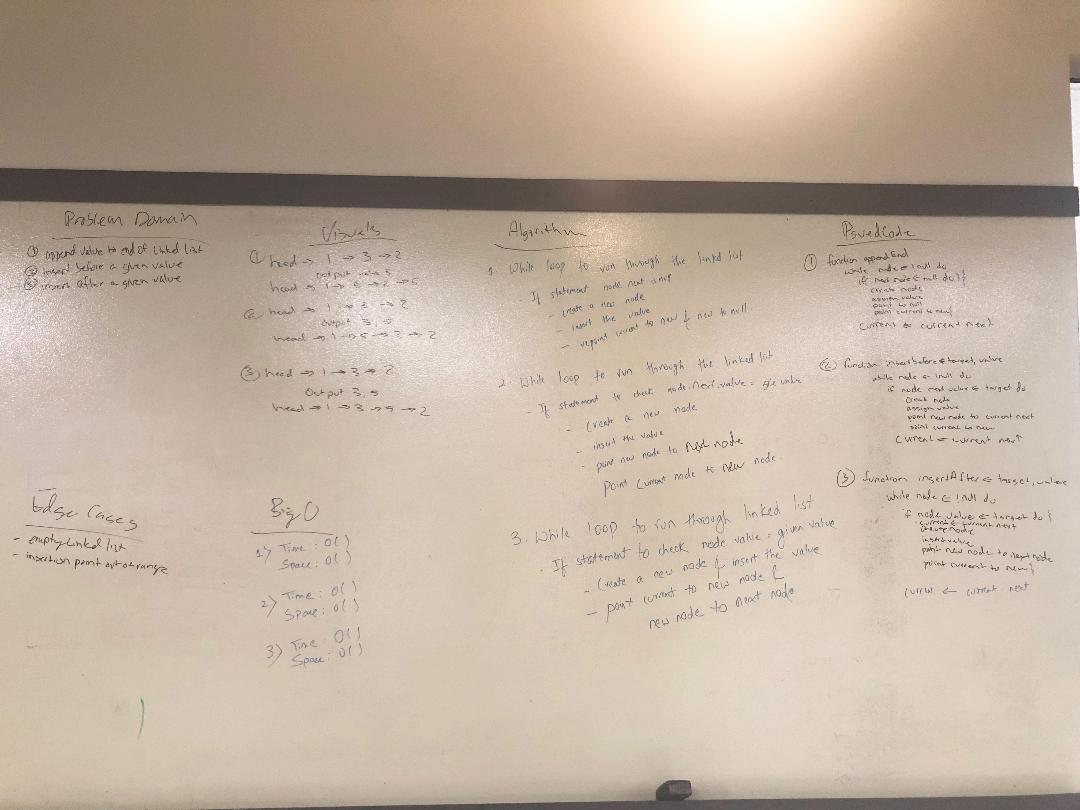 Problem Domain
① append value to end of linked list
② insert before a given value
③ insert after a given value
Visuals
① head → 1 → 3 → 2
output → 5
head → 1 → 3 → 2 → 5
② head → 1 → 3 → 2
Output 3, 5
head → 1 → 5 → 3 → 2
③ head → 1 → 3 → 2
Output 3, 5
head → 1 → 3 → 5 → 2
Algorithm
1. While loop to run through the linked list
- If statement node.next is null
- create a new node
- insert the value
- repoint current to new & new to null
2. While loop to run through the linked list
- If statement to check node.next.value = give value
- Create a new node
- insert the value
- point new node to next node
point current node to new node.
3. While loop to run through linked list
. If statement to check node value = given value
- Create a new node & insert the value
- point current to new node &
new node to next node
PsuedCode
① function append End
while node ← !null do
if next node ← null do {
create node
assign value
point to null
point current to new}
Current ← current next}
② function insertbefore ← target, value
while node ← !null do
if node next value ← target do
creat node
assign value
point new node to current next
point current to new
Current ← current next
③ function insertAfter ← target, value
while node ← !null do
if node value ← target do {
current ← current next
create node
insert value
point new node to next node
point current to new}
current ← current next
Edge Cases
- empty linked list
- insertion point out of range
Big O
1) Time : O( )
Space : O( )
2) Time : O( )
Space : O( )
3) Time : O( )
Space : O( )